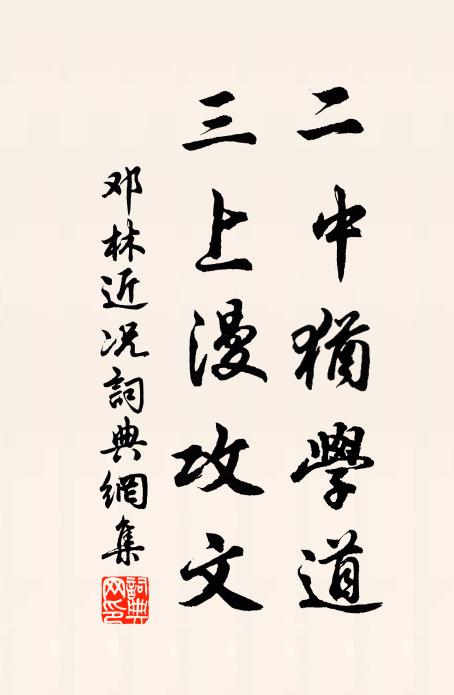 二中猶學道
三上漫攻文
邓林近况詞典網集
詞典網印